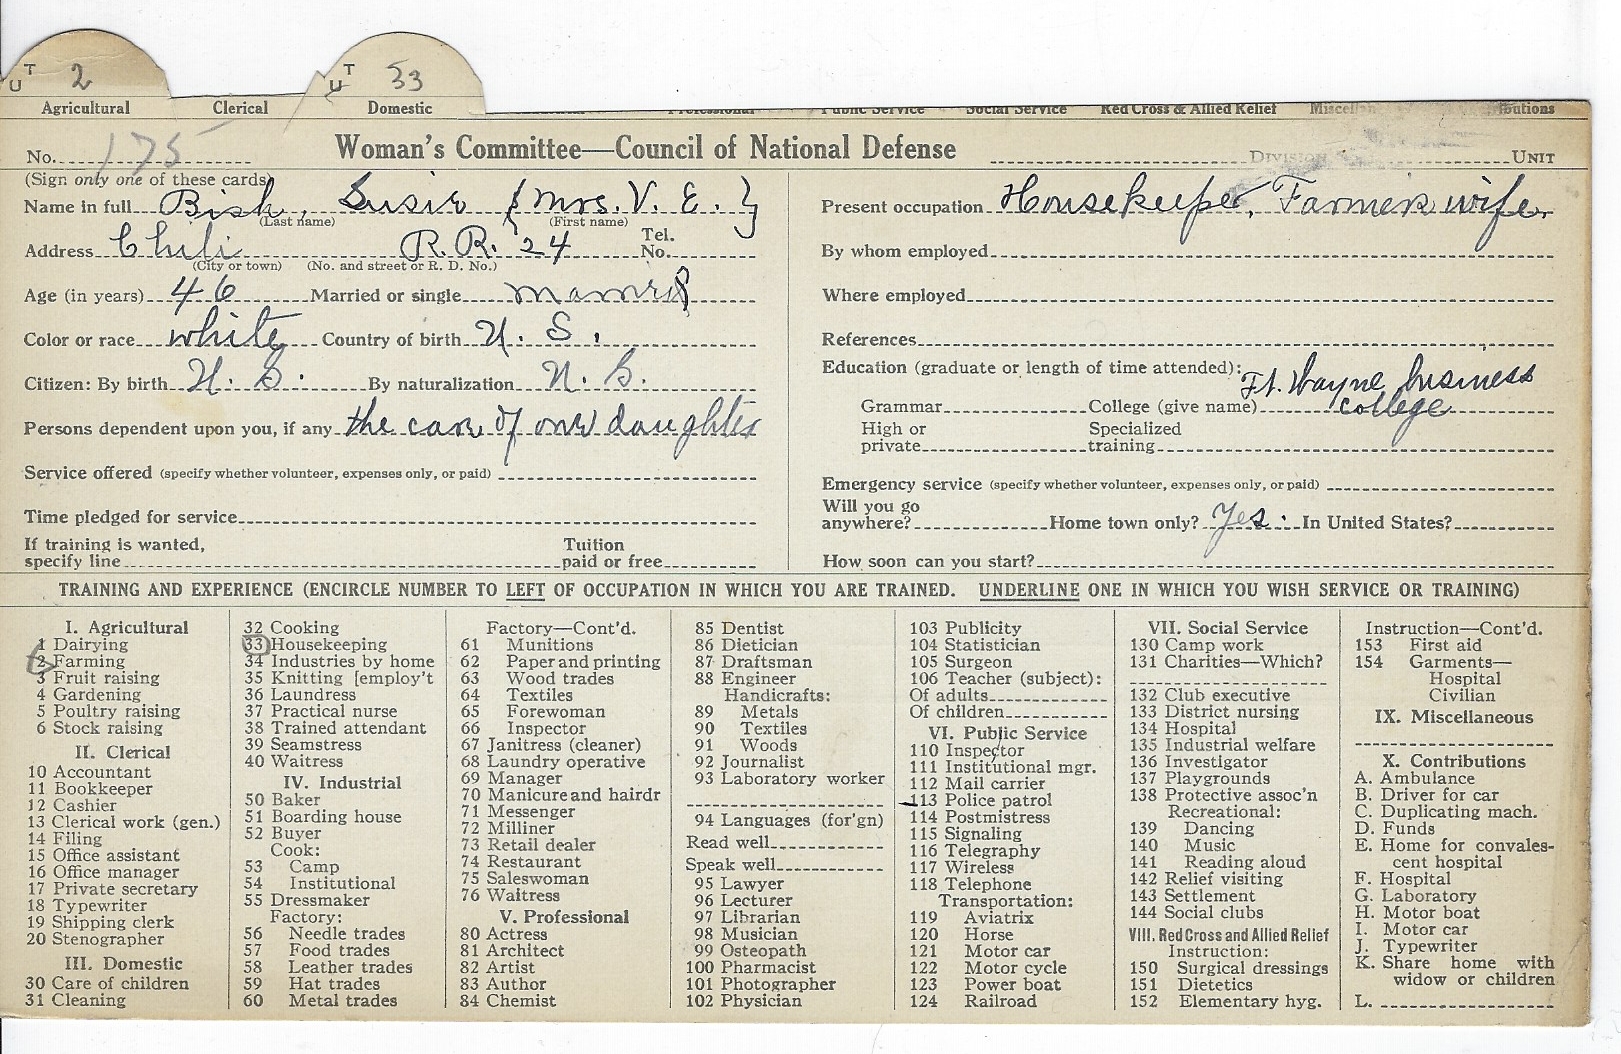 U T 2
U T 33
Agricultural Clerical Domestic Professional Public Service Social Service Red Cross & Allied Relief
No. 175 Woman's Committee—Council of National Defense Division Unit
(Sign only one of these cards)
Name in full Bish, Susie {Mrs. V. E.}
(Last name) (First name)
Address Chili R.R. 24 Tel. No.
(City or town) (No. and street or R. D. No.)
Age (in years) 46 Married or single married
Color or race white Country of birth U. S.
Citizen: By birth U. S. By naturalization U. S.
Persons dependent upon you, if any the care of one daughter
Service offered (specify whether volunteer, expenses only, or paid)
Time pledged for service
If training is wanted, specify line Tuition paid or free
Present occupation Housekeeper, Farmers wife
By whom employed
Where employed
References
Education (graduate or length of time attended): Ft. Wayne business
Grammar College (give name) college
High or private Specialized training
Emergency service (specify whether volunteer, expenses only, or paid)
Will you go anywhere? Home town only? Yes. In United States?
How soon can you start?
TRAINING AND EXPERIENCE (ENCIRCLE NUMBER TO LEFT OF OCCUPATION IN WHICH YOU ARE TRAINED. UNDERLINE ONE IN WHICH YOU WISH SERVICE OR TRAINING)
I. Agricultural
1 Dairying
2 Farming
3 Fruit raising
4 Gardening
5 Poultry raising
6 Stock raising
II. Clerical
10 Accountant
11 Bookkeeper
12 Cashier
13 Clerical work (gen.)
14 Filing
15 Office assistant
16 Office manager
17 Private secretary
18 Typewriter
19 Shipping clerk
20 Stenographer
III. Domestic
30 Care of children
31 Cleaning
32 Cooking
33 Housekeeping
34 Industries by home
35 Knitting [employ't
36 Laundress
37 Practical nurse
38 Trained attendant
39 Seamstress
40 Waitress
IV. Industrial
50 Baker
51 Boarding house
52 Buyer
Cook:
53 Camp
54 Institutional
55 Dressmaker
Factory:
56 Needle trades
57 Food trades
58 Leather trades
59 Hat trades
60 Metal trades
Factory—Cont'd.
61 Munitions
62 Paper and printing
63 Wood trades
64 Textiles
65 Forewoman
66 Inspector
67 Janitress (cleaner)
68 Laundry operative
69 Manager
70 Manicure and hairdr
71 Messenger
72 Milliner
73 Retail dealer
74 Restaurant
75 Saleswoman
76 Waitress
V. Professional
80 Actress
81 Architect
82 Artist
83 Author
84 Chemist
85 Dentist
86 Dietician
87 Draftsman
88 Engineer
Handicrafts:
89 Metals
90 Textiles
91 Woods
92 Journalist
93 Laboratory worker
94 Languages (for'gn)
Read well
Speak well
95 Lawyer
96 Lecturer
97 Librarian
98 Musician
99 Osteopath
100 Pharmacist
101 Photographer
102 Physician
103 Publicity
104 Statistician
105 Surgeon
106 Teacher (subject):
Of adults
Of children
VI. Public Service
110 Inspector
111 Institutional mgr.
112 Mail carrier
113 Police patrol
114 Postmistress
115 Signaling
116 Telegraphy
117 Wireless
118 Telephone
Transportation:
119 Aviatrix
120 Horse
121 Motor car
122 Motor cycle
123 Power boat
124 Railroad
VII. Social Service
130 Camp work
131 Charities—Which?
132 Club executive
133 District nursing
134 Hospital
135 Industrial welfare
136 Investigator
137 Playgrounds
138 Protective assoc'n
Recreational:
139 Dancing
140 Music
141 Reading aloud
142 Relief visiting
143 Settlement
144 Social clubs
VIII. Red Cross and Allied Relief
Instruction:
150 Surgical dressings
151 Dietetics
152 Elementary hyg.
Instruction—Cont'd.
153 First aid
154 Garments—
Hospital
Civilian
IX. Miscellaneous
X. Contributions
A. Ambulance
B. Driver for car
C. Duplicating mach.
D. Funds
E. Home for convales-
cent hospital
F. Hospital
G. Laboratory
H. Motor boat
I. Motor car
J. Typewriter
K. Share home with
widow or children
L.